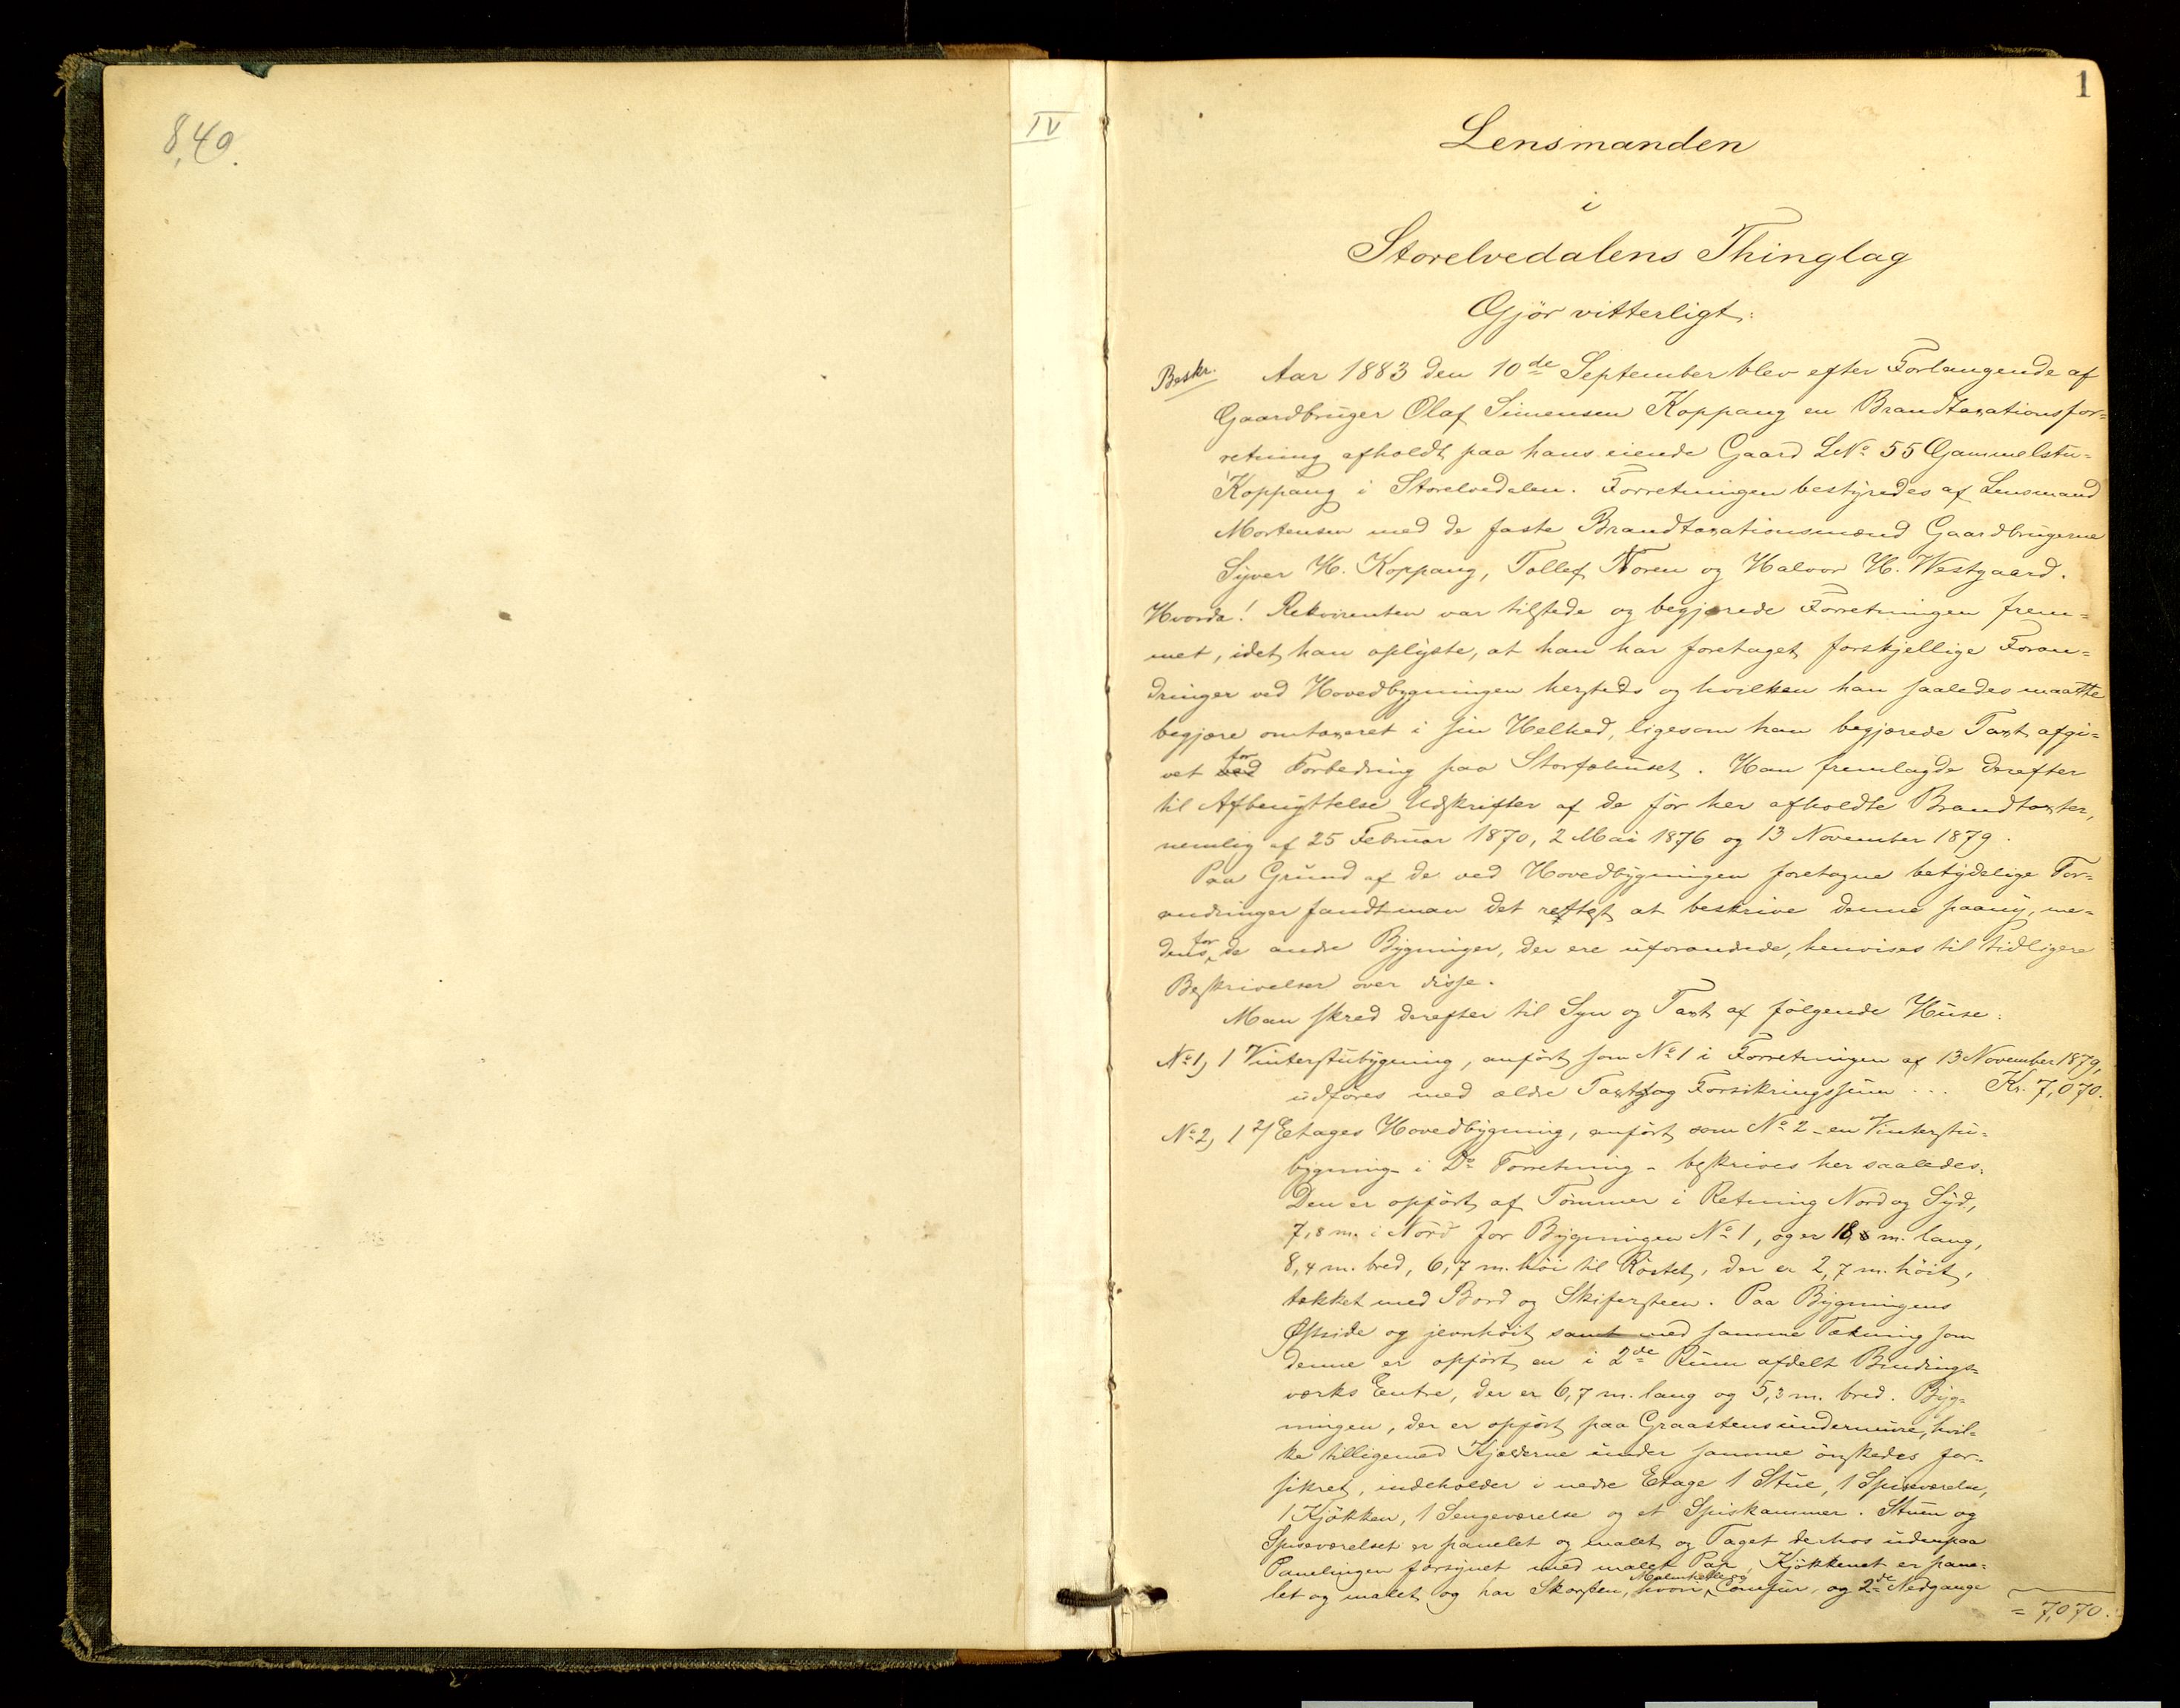 8,40.
IV
1
Lensmanden
i
Storelvedalens Thinglag
Gjør vitterligt:
Beskr. Aar 1883 den 10de September blev efter Forlangende af
Gaardbruger Olaf Simensen Koppang en Brandtaxationsfor=
retning afholdt paa hans eiende Gaard LNo 55 Gammelstu=
Koppang i Storelvedalen. Forretningen bestyredes af Lensmand
Mortensen med de faste Brandtaxationsmænd Gaardbrugerne
Syver H. Koppang, Tollef Noren og Halvor H. Westgaard.
Hvorda! Rekvirenten var tilstede og begjærede Forretningen frem=
met, idet han oplyste, at han har foretaget forskjellige Foran=
dringer ved Hovedbygningen hersteds og hvilken han saaledes maatte
begjære omtaxeret i sin Helhed, ligesom han begjærede Taxt afgi=
vet ved for Forbedring paa Storfæhuset. Han fremlagde derefter
til Afbenyttelse Udskrifter af de før her afholdte Brandtaxter,
nemlig af 25 Februar 1870, 2 Mai 1876 og 13 November 1879.
Paa Grund af de ved Hovedbygningen foretagne betydelige For=
andringer fandt man det rettest at beskrive denne paany, me=
dens for de andre Bygninger, der ere uforandrede, henvises til tidligere
Beskrivelser over disse.
Man skred derefter til Syn og Taxt af følgende Huse:
No 1, 1 Vinterstubygning, anført som No 1 i Forretningen af 13 November 1879,
udføres med ældre Taxt og Forsikringssum ... Kr. 7,070.
No 2, 1 2/ Etages Hovedbygning, anført som No 2 - en Vinterstu=
bygning - i Do Forretning - beskrives her saaledes:
Den er opført af Tømmer i Retning Nord og Syd,
7,8 m. i Nord for Bygningen No 1, og er 18 m. lang,
8,4 m. bred, 6,7 m. høi til Røstet, der er 2,7 m. høit,
tækket med Bord og Skifersteen. Paa Bygningens
Østside og jevnhøit samt med samme Tækning som
denne er opført en i 2de Rum afdelt Bindings=
værks Entre, der er 6,7 m. lang og 5,3 m. bred. Byg=
ningen, der er opført paa Graastens undermure, hvil=
ke tilligemed Kjælderne under samme ønskedes for=
sikret, indeholder i nedre Etage 1 Stue, 1 Spiseværelse,
1 Kjøkken, 1 Sengeværelse og et Spiskammer. Stuen og
Spiseværelset er panelet og malet og Taget derhos udenpaa
Panelingen forsynet med malet Pap, Kjøkkenet er pane=
let og malet og har Skorsten, hvori Comfur, og 2de Nedgange
= 7,070.